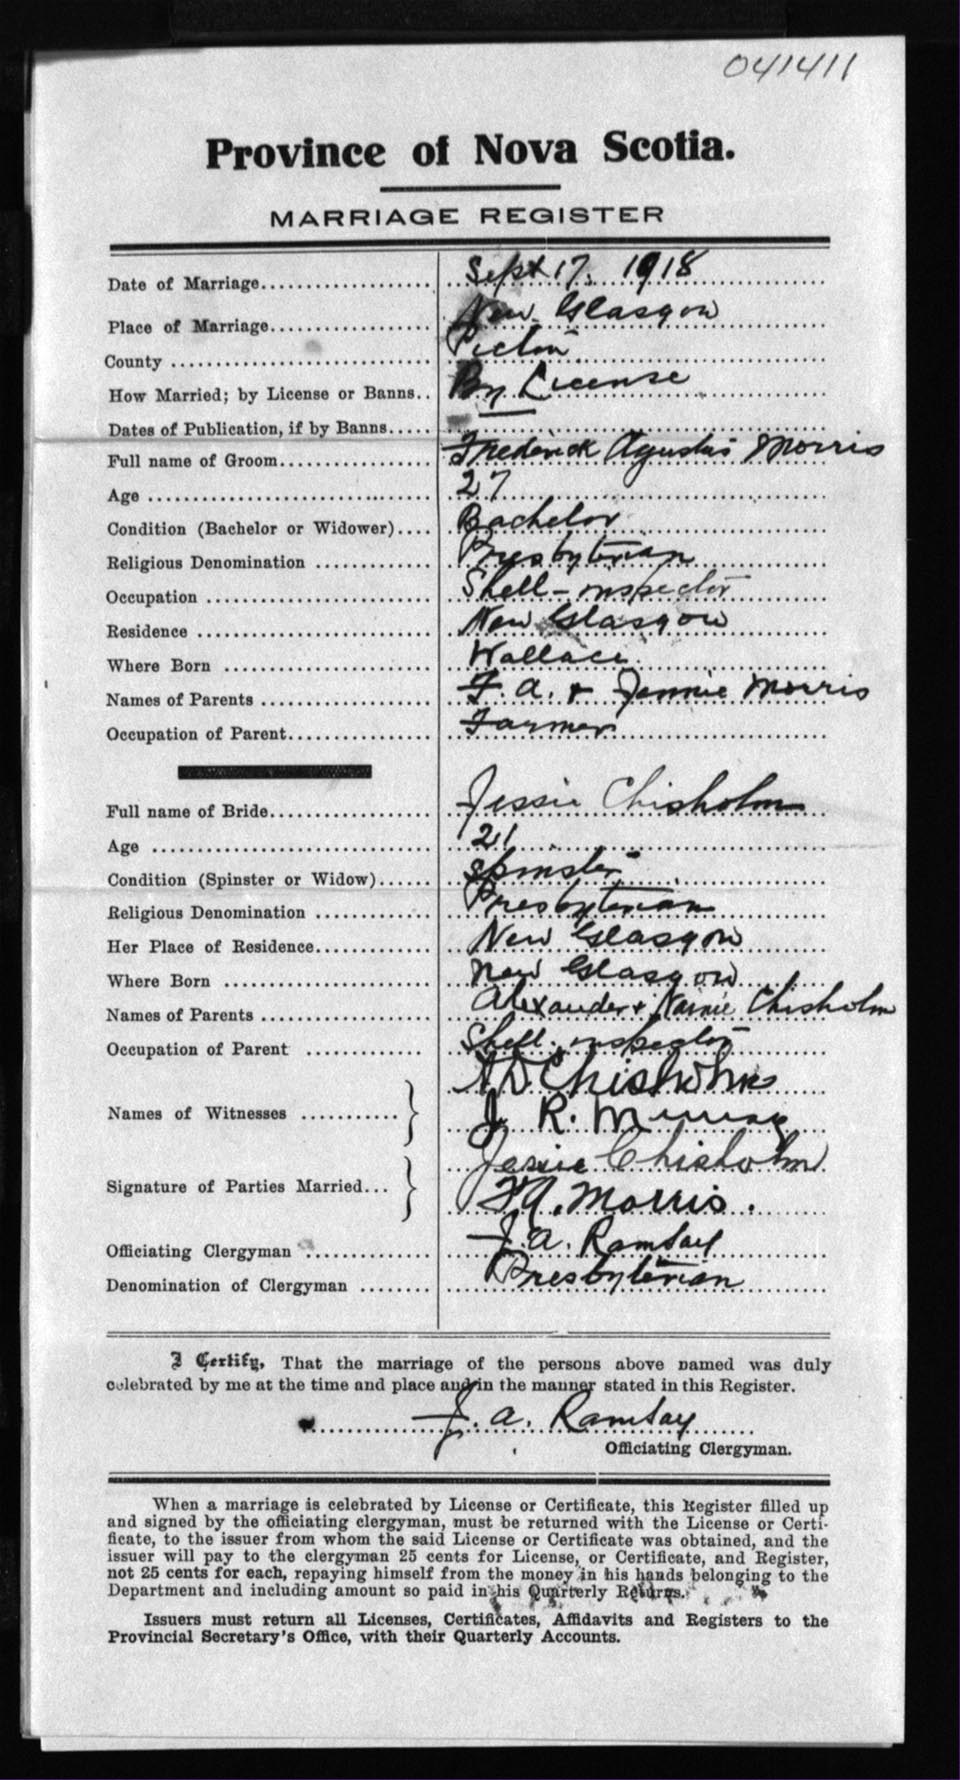 041411
Province of Nova Scotia.
MARRIAGE REGISTER
Date of Marriage.................... Sept 17. 1918
Place of Marriage.................. New Glasgow
County .............................. Pictou
How Married; by License or Banns.. By License
Dates of Publication, if by Banns.....
Full name of Groom.................. Frederick Agustus Morris
Age .................................. 27
Condition (Bachelor or Widower).... Bachelor
Religious Denomination ............. Presbyterian
Occupation .......................... Shell-inspector
Residence ........................... New Glasgow
Where Born ......................... Wallace
Names of Parents ................... F. A. & Jennie Morris
Occupation of Parent................ Farmer
Full name of Bride.................. Jessie Chisholm
Age .................................. 21
Condition (Spinster or Widow)...... Spinster
Religious Denomination ............. Presbyterian
Her Place of Residence............. New Glasgow
Where Born ......................... New Glasgow
Names of Parents ................... Alexander & Chisholm
Occupation of Parent .............. Shell inspector
D. Chisholm
Names of Witnesses ...........}
J. R. Murray
Jessie Chisholm
Signature of Parties Married...}
F. A. Morris.
Officiating Clergyman .............. J. A. Ramsay
Denomination of Clergyman ........ Presbyterian
I Certify, That the marriage of the persons above named was duly
celebrated by me at the time and place and in the manner stated in this Register.
J. A. Ramsay
Officiating Clergyman.
When a marriage is celebrated by License or Certificate, this Register filled up
and signed by the officiating clergyman, must be returned with the License or Certi-
ficate, to the issuer from whom the said License or Certificate was obtained, and the
issuer will pay to the clergyman 25 cents for License, or Certificate, and Register,
not 25 cents for each, repaying himself from the money in his hands belonging to the
Department and including amount so paid in his Quarterly Returns.
Issuers must return all Licenses, Certificates, Affidavits and Registers to the
Provincial Secretary's Office, with their Quarterly Accounts.